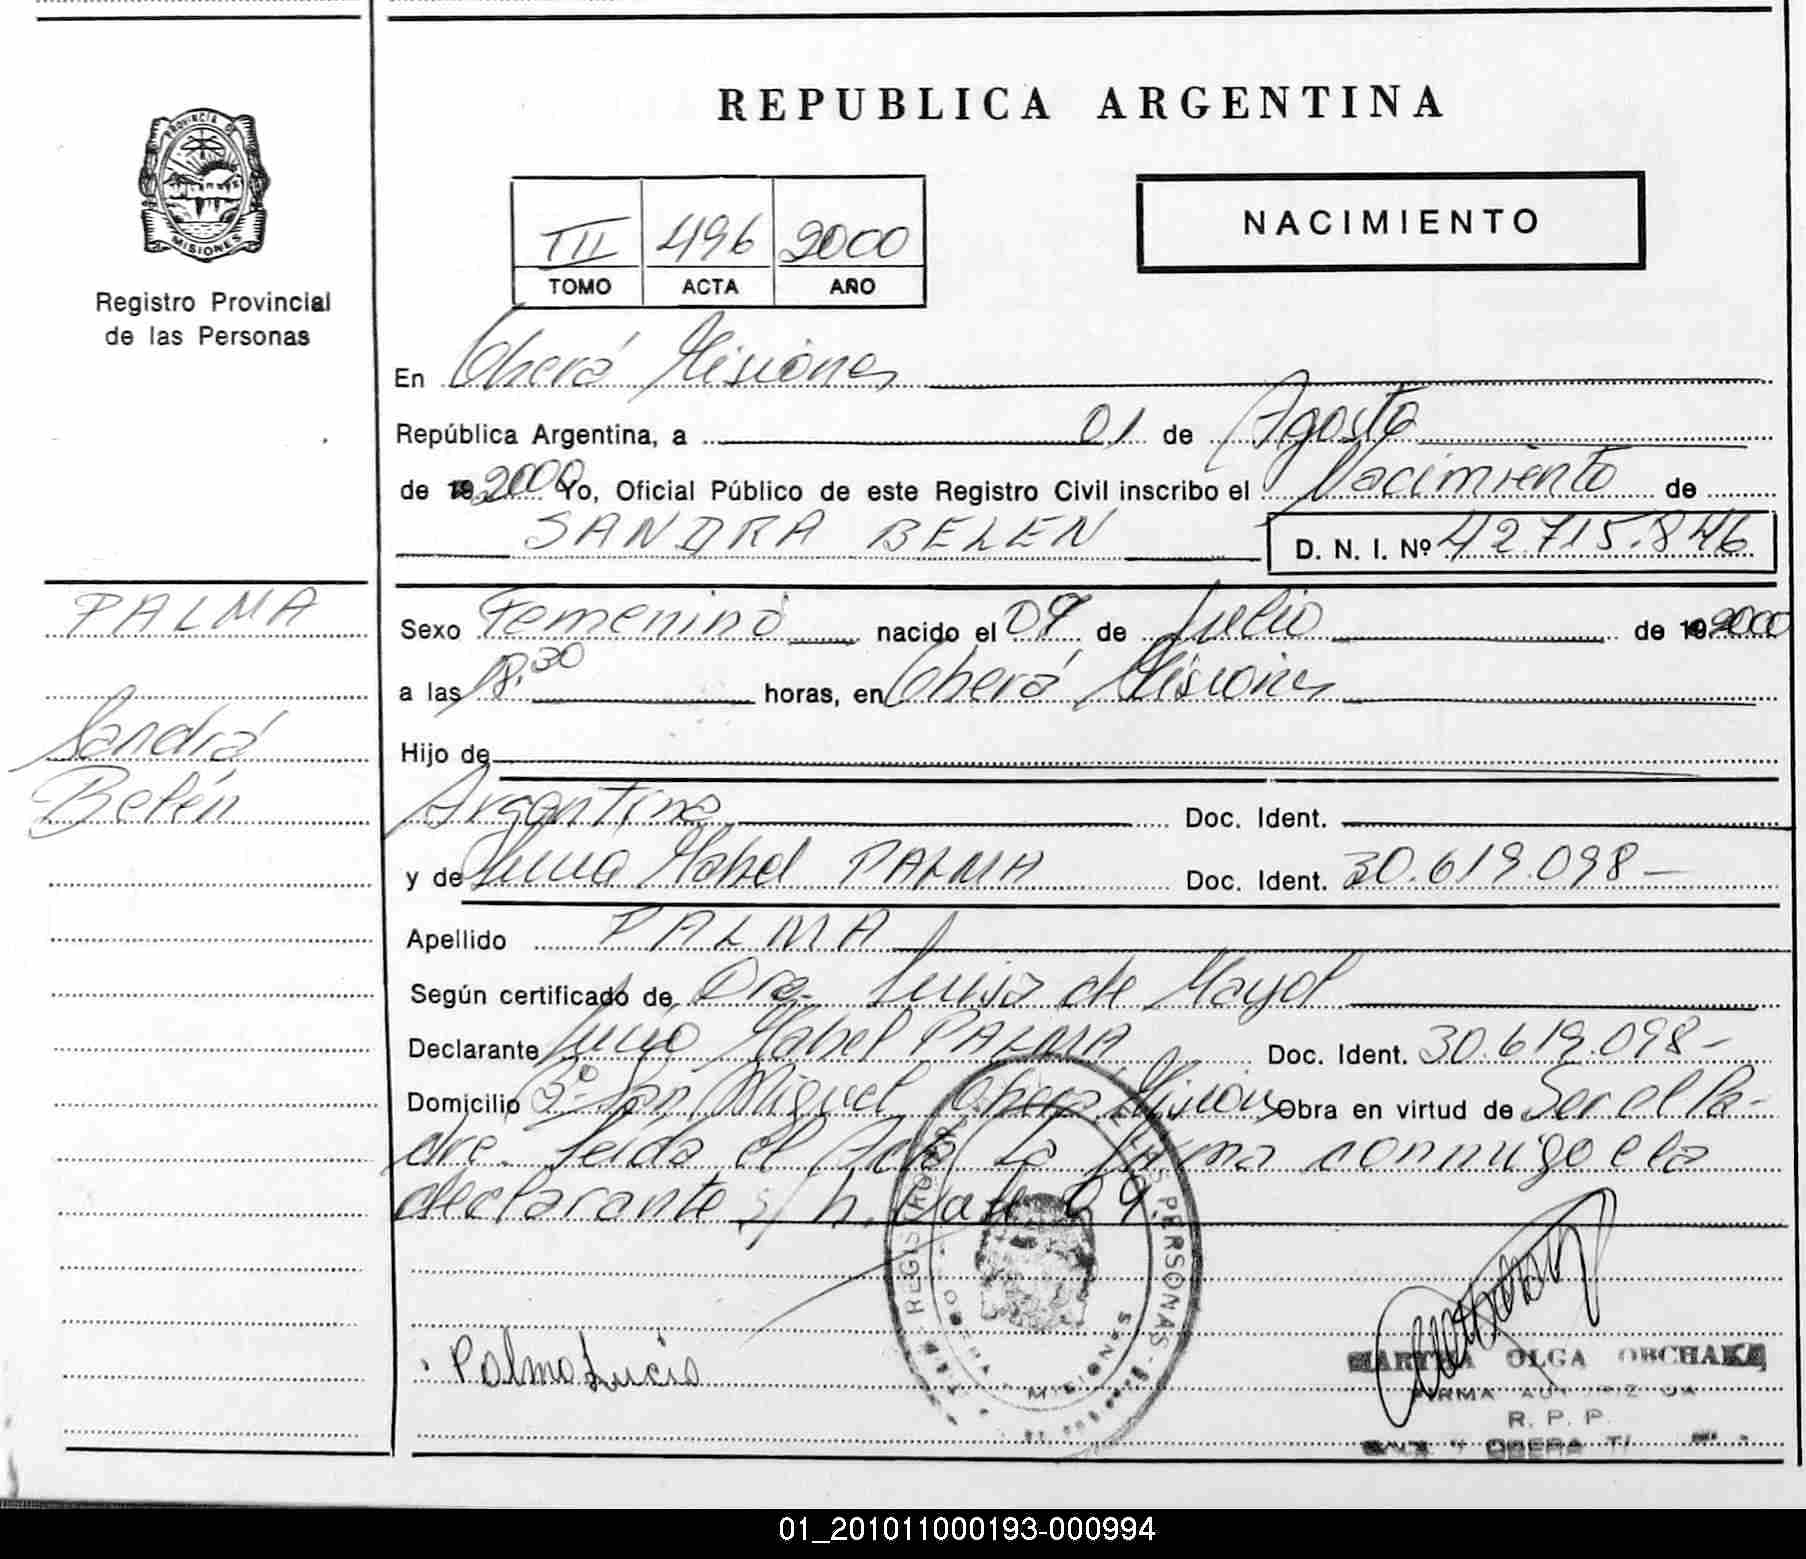 PROVINCIA DE
MISIONES
Registro Provincial
de las Personas
REPUBLICA ARGENTINA
NACIMIENTO
III 496 2000
TOMO ACTA AÑO
En Oberá Misiones
República Argentina, a 01 de Agosto
de 19 2000 Yo, Oficial Público de este Registro Civil inscribo el Nacimiento de
SANDRA BELEN D. N. I. Nº 42.715.846
PALMA
Sandra
Belén
Sexo Femenino nacido el 09 de Julio de 19 2000
a las 18.30 horas, en Oberá Misiones
Hijo de
Argentina Doc. Ident.
y de Lucia Mabel PALMA Doc. Ident. 30.619.098-
Apellido PALMA
Según certificado de Dra. Luisa de Mayol
Declarante Lucia Mabel PALMA Doc. Ident. 30.619.098-
Domicilio Bº San Miguel Oberá Misiones Obra en virtud de Ser el Pa-
dre. Leída el Acta La firma conmigo ela
declarante s/h. Vale 09.
REGISTRO PERSONAS
MISIONES
Palma Lucia
MARTHA OLGA OBCHAKE
FIRMA AUTORIZADA
R. P. P.
OBERA
01_201011000193-000994